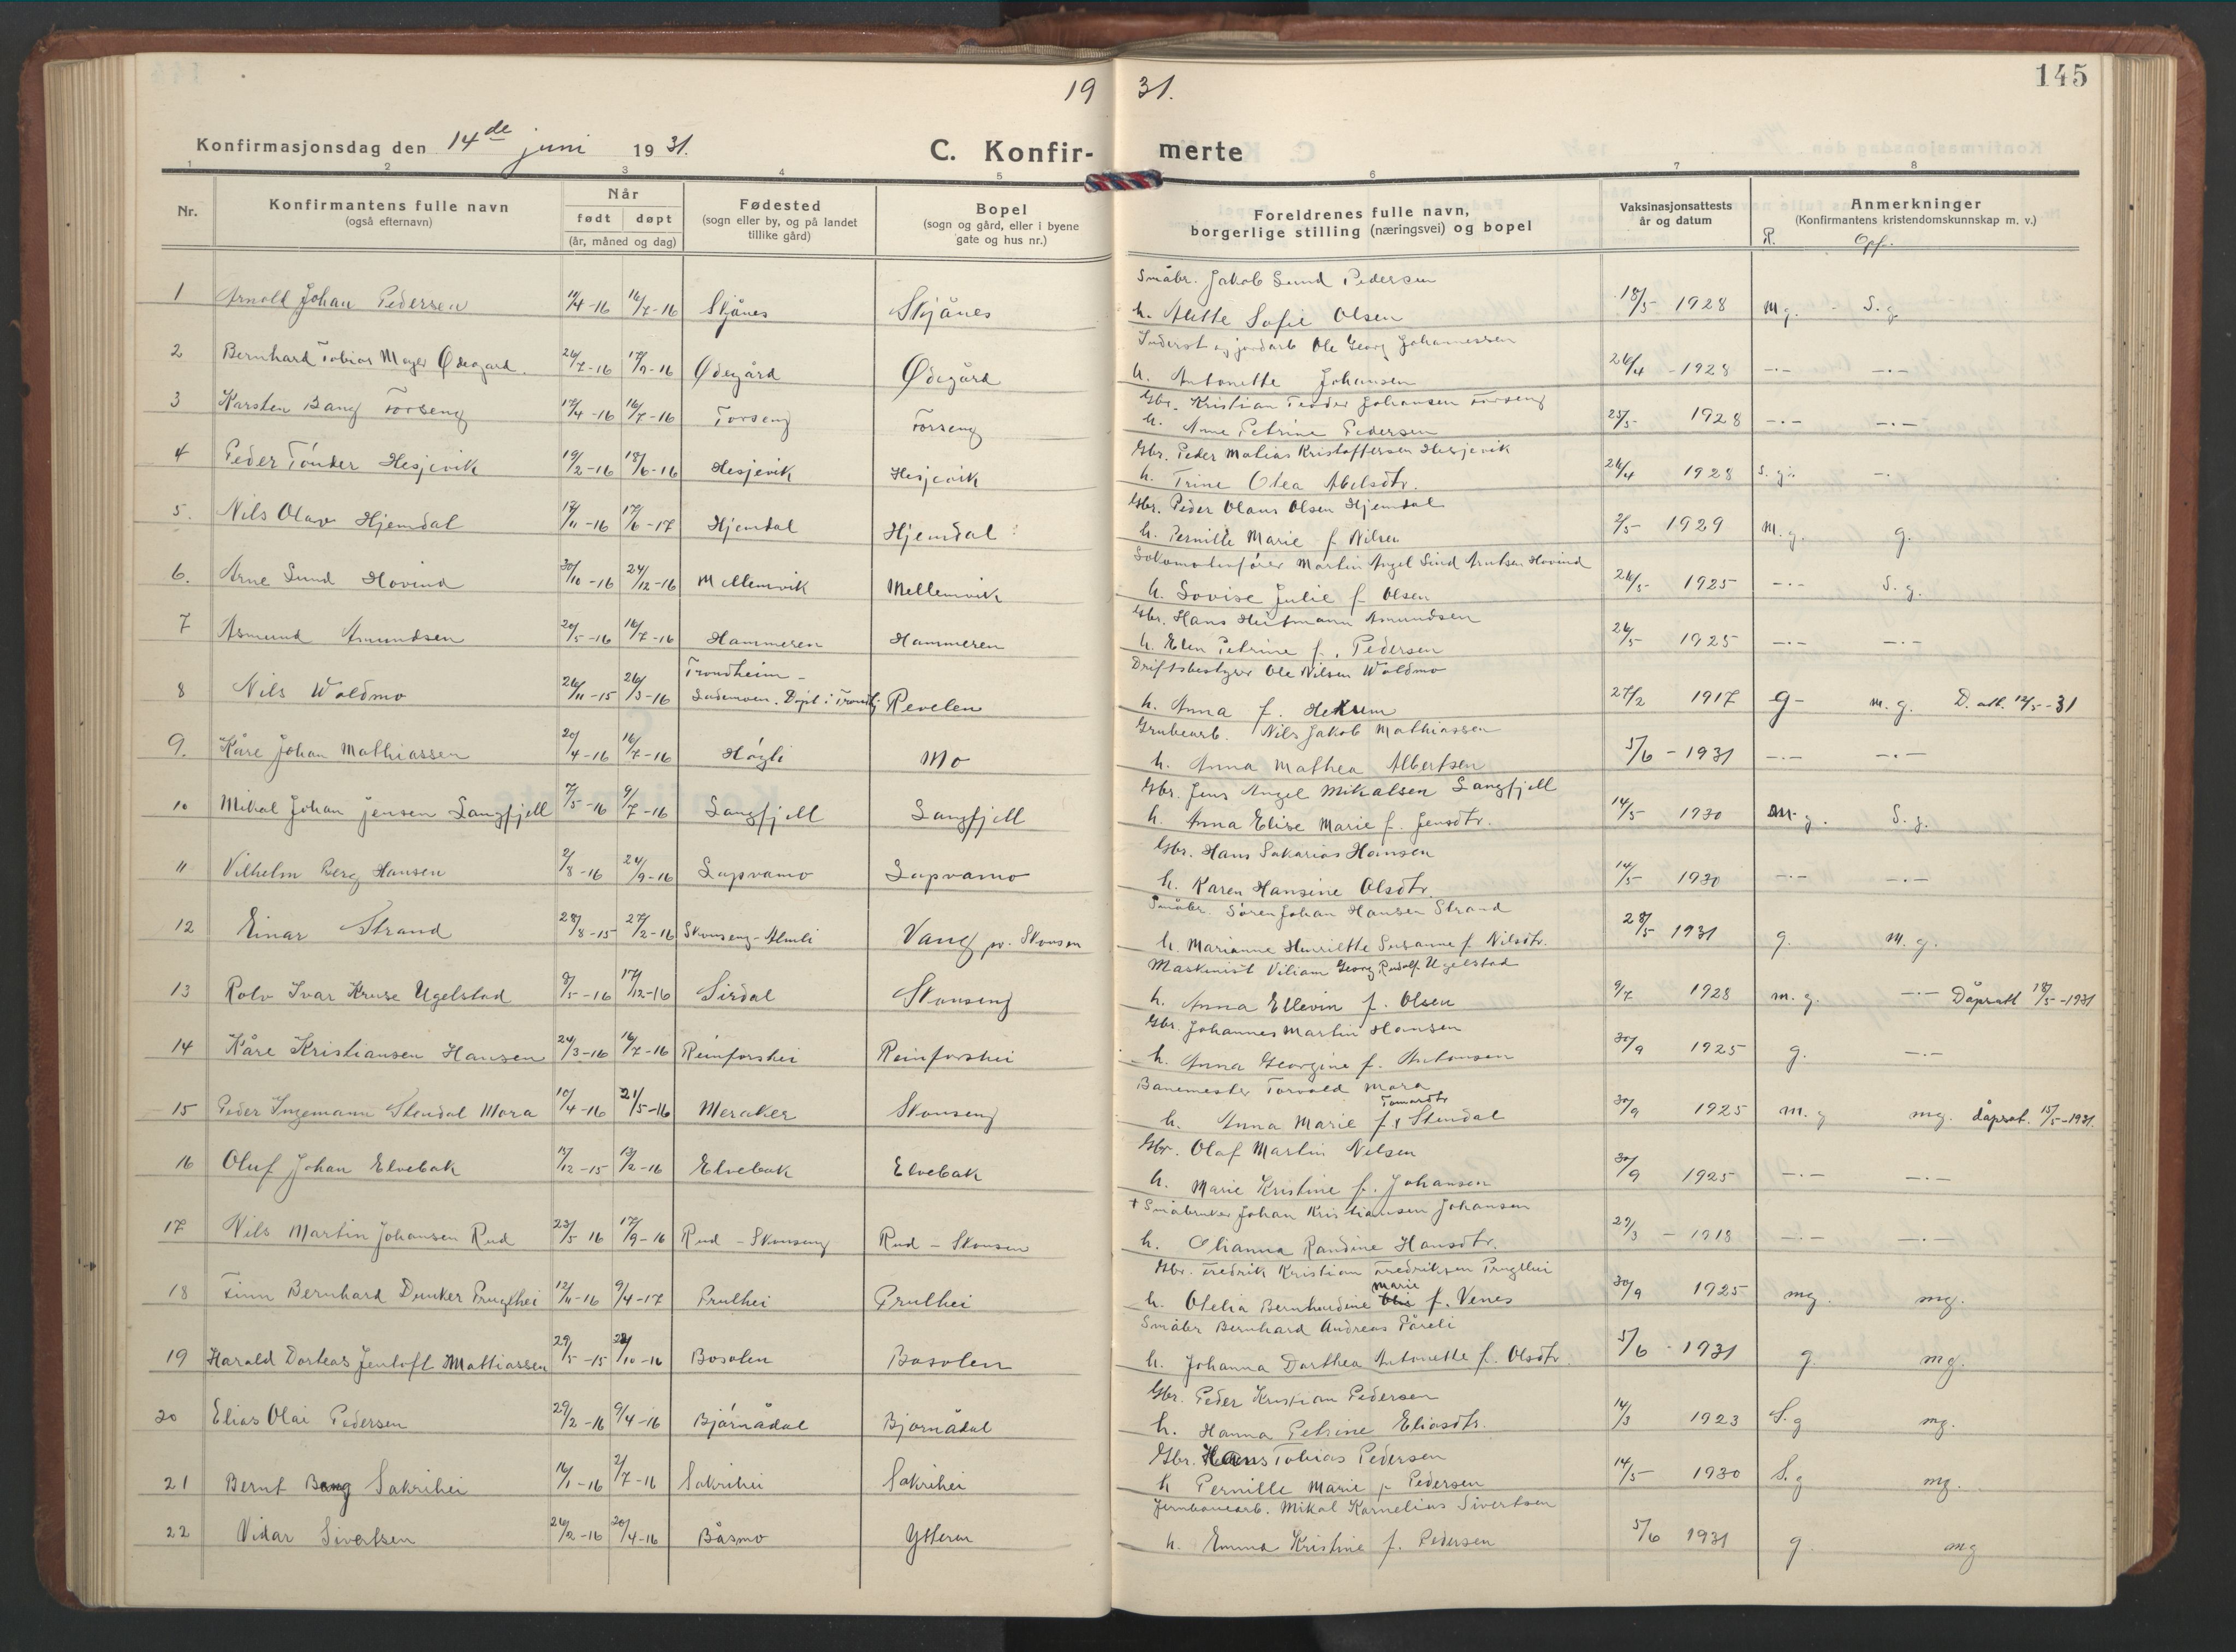 19 31.
145
Konfirmasjonsdag den 14de juni 1931.
C. Konfir- merte
1 2 3 4 5 6 7 8
Nr.
Konfirmantens fulle navn
(også efternavn)
Når
født døpt
(år, måned og dag)
Fødested
(sogn eller by, og på landet
tillike gård)
Bopel
(sogn og gård, eller i byene
gate og hus nr.)
Foreldrenes fulle navn,
borgerlige stilling (næringsvei) og bopel
Vaksinasjonsattests
år og datum
Anmerkninger
(Konfirmantens kristendomskunnskap m. v.)
R. Opf.
Småbr. Jakob Lund Pedersen
1 Arnold Johan Pedersen 11/4-16 16/7-16 Skjånes Skjånes h. Alette Sofie Olsen 18/5- 1928 M g. - S. g.
Inderst og jordarb Ole Georg Johannessen
2 Bernhard Tobias Meyer Ødegard. 26/7-16 17/9-16 Ødegård Ødegård h. Antonette Johansen 26/4 -1928 -.- -.-
Gbr. Kristian Teodor Johansen Forseng
3 Karsten Bang Forseng 17/4-16 16/7-16 Forseng Forseng h. Ane Petrine Pedersen 25/5- 1928 -.- -.-
Gbr. Peder Matias Kristoffersen Hesjevik
4 Peder Tönder Hesjevik 19/2-16 18/6-16 Hesjevik Hesjevik h. Trine Olea Abelsdtr. 26/4 1928 S. g. -.
Gbr. Peder Olaus Olsen Hjemdal
5. Nils Olav Hjemdal 17/11-16 17/6-17 Hjemdal Hjemdal h. Pernille Marie f. Nilsen 2/5- 1929 M. g. g.
Lokomotivfører Martin Angel Lind Arntsen Hovind
6. Arne Lund Hovind 30/10-16 24/12-16 Mellemvik Mellemvik h. Lovise Julie f. Olsen 26/5- 1925 -.- S. g.
Gbr. Hans Heitmann Amundsen
7 Asmund Amundsen 20/5-16 16/7-16 Hammeren Hammeren h. Elen Petrine f. Pedersen 26/5- 1925 -.- -.-
Driftsbestyrer Ole Nilsen Woldmo
Trondheim -
8 Nils Woldmo 26/11-15 26/3-16 Lademoen. Døpt i Trondhj Revelen h. Anna f. Heksum 27/2 1917 g- m. g. D. att. 12/5-31
Grubearb. Nils Jakob Mathiassen
9. Kåre Johan Mathiassen 20/4-16 16/7-16 Høgli Mo h. Anna Mathea Albertsen 5/6 - 1931 -.- -.-
Gbr. Jens Angel Mikalsen Langfjell
10 Mikal Johan Jensen Langfjell 7/5-16 9/7-16 Langfjell Langfjell h. Anna Elise Marie f. Jensdtr. 14/5- 1930 M. g. S. g.
Gbr. Hans Sakarias Hansen
11 Vilhelm Berg Hansen 2/8-16 24/9-16 Lapvamo Lapvamo h. Karen Hansine Olsdtr. 14/5- 1930 -.- -.-
Småbr. Søren Johan Hansen Strand
12 Einar Strand 28/8-15 27/2-16 Skonseng-Almli Vang pr. Skonsen h. Marianne Henriette Susanne f. Nilsdtr. 28/5 1931 g. m. g.
Maskinist Viliam Georg Rudolf Ugelstad
13 Rolv Ivar Kruse Ugelstad 9/5-16 17/12-16 Sirdal Skonseng h. Anna Ellevin f. Olsen 9/7 1928 m. g. -.- Dåpsatt 18/5-1931
Gbr. Johannes Martin Hansen
14 Kåre Kristiansen Hansen 24/3-16 16/7-16 Reinforshei Reinforshei h. Anna Georgine f. Antonsen 30/9 1925 g. -.-
Banemester Torvald Mora
Tomasdtr
15 Peder Ingemann Stendal Mora 10/4-16 21/5-16 Meraker Skonseng h. Anna Marie f. Stendal 30/9 1925 m. g mg. dåpsat. 15/5-1931.
Gbr. Olaf Martin Nilsen
16 Oluf Johan Elvebak 15/12-15 13/2-16 Elvebak Elvebak h. Marie Kristine f. Johansen 30/9 1925 -.- -.-
+ Småbruker Johan Kristiansen Johansen
17 Nils Martin Johansen Rud 23/5 16 17/9-16 Rud - Skonseng Rud - Skonsen h. Olianna Randine Hansdtr. 29/3 - 1918 -.- -.-
Gbr. Fredrik Kristian Fredriksen Prugthei
Marie
18 Finn Bernhard Dunker Prugthei 12/11-16 9/4-17 Prulhei Prulhei h. Otelia Bernhardine f. Venes 30/9 1925 mg. mg.
Småbr Bernhard Andreas Fåreli
19 Harald Dorteas Jentoft Mattiassen 29/5-15 22/10-16 Bosolen Bosolen h. Johanna Dorthea Antonette f. Olsdtr. 5/6 - 1931 g mg.
Gbr. Peder Kristian Pedersen
20 Elias Olai Pedersen 29/2-16 9/4-16 Bjørnådal Bjornådal h. Hanna Petrine Eliasdtr. 14/3 1923 S. g mg.
Gbr. Hans Tobias Pedersen
21 Bernt Bang Sakrihei 16/1-16 2/7-16 Sakrihei Sakrihei h Pernille Marie f Pedersen 14/5- 1930 S. g mg.
Jernbanearb. Mikal Kornelius Sivertsen
22 Vidar Sivertsen 26/2-16 20/4-16 Båsmo Ytteren h. Emma Kristine f. Pedersen 5/6 1931 g. mg